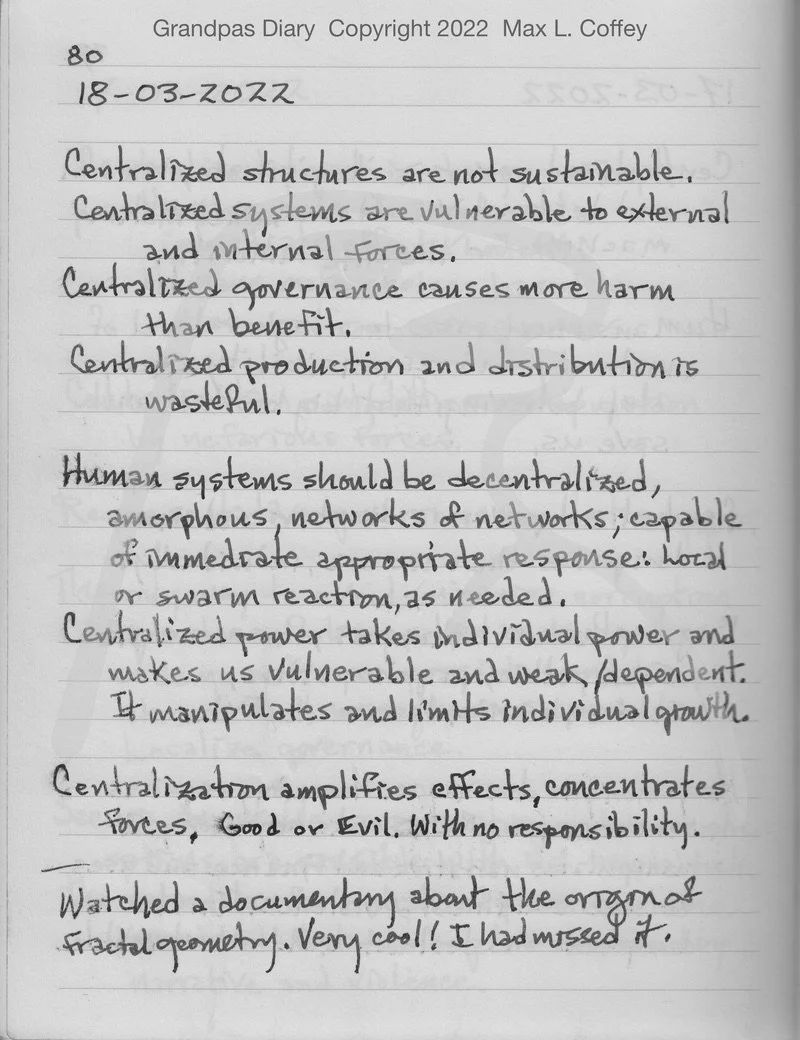 Grandpas Diary Copyright 2022 Max L. Coffey
80
18-03-2022
Centralized structures are not sustainable.
Centralized systems are vulnerable to external
and internal forces.
Centralized governance causes more harm
than benefit.
Centralized production and distribution is
wasteful.
Human systems should be decentralized,
amorphous, networks of networks; capable
of immediate appropriate response: Local
or swarm reaction, as needed.
Centralized power takes individual power and
makes us vulnerable and weak/dependent.
It manipulates and limits individual growth.
Centralization amplifies effects, concentrates
forces, Good or Evil. With no responsibility.
Watched a documentary about the origin of
fractal geometry. Very cool! I had missed it.